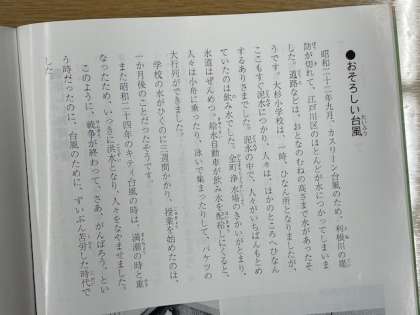 ●おそろしい台風
昭和二十二年九月、カスリーン台風のため、利根川の堤
防が切れて、江戸川区のほとんどが水につかってしまいま
した。道路などは、おとなのむねの高さまで水があったそ
うです。大杉小学校は、一時、ひなん所となりましたが、
ここもすぐ泥水につかり、人々は、ほかのところへひなん
するありさまでした。泥水の中で、人々がいちばんもとめ
ていたのは飲み水でした。金町浄水場のきかいがとまり、
水道はぜんめつ。給水自動車が飲み水を配給しにくると、
人々は小舟に乗ったり、泳いで集まったりして、バケツの
大行列ができました。
学校の水がひくのに三週間かかり、授業を始めたのは、
一か月後のことだったそうです。
また昭和二十四年のキティ台風の時は、満潮の時と重
なったため、いっきに洪水となり、人々をなやませました。
このように、戦争が終わって、さあ、がんばろう、とい
う時だったのに、台風のために、ずいぶん苦労した時代で
した。